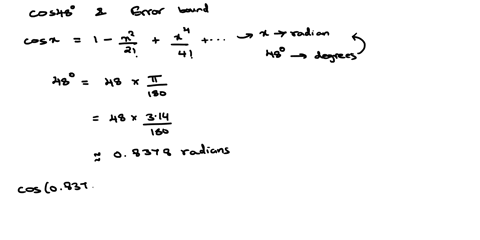 cos48° & Error bound
cosx = 1 - x²/2! + x⁴/4! + ... → x → radian
48° → degrees
48° = 48 × π/180
= 48 × 3.14/180
≈ 0.8378 radians
cos(0.837